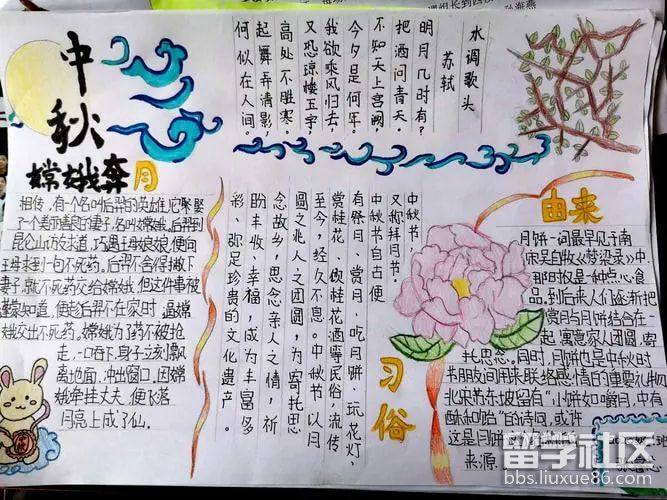 中秋
嫦娥奔月
相传,有个名叫后羿的英雄,它聚娶
了个美丽善良的妻子,名叫嫦娥。后羿到
昆仑山访友求道,巧遇王母娘娘,便向
王母求到一包不死药。后羿不舍得撇下
妻子,就不死药交给嫦娥。但这件事被
蓬蒙知道,便趁后羿不在家时,逼嫦
娥交出不死药。嫦娥为了药不被抢
走,一口吞下,身子立刻飘
离地面,冲出窗口。因嫦
娥牵挂丈夫,便飞落
月亮上成了仙。
水调歌头
苏轼
明月几时有?
把酒问青天。
不知天上宫阙
今夕是何年。
我欲乘风归去,
又恐琼楼玉宇
高处不胜寒。
起舞弄清影,
何似在人间。
中秋节,
又称拜月节。
中秋节自古便
有祭月、赏月、吃月饼、玩花灯,
赏桂花、饮桂花酒等民俗,流传
至今,经久不息。中秋节以月
圆之兆人之团圆,为寄托思
念故乡,思念亲人之情,祈
盼丰收、幸福,成为丰富多
彩、弥足珍贵的文化遗产。
习俗
由来
月饼一词最早见于南
宋吴自牧《梦梁录》中
那时仅是一种点心食
品,到后来人们逐渐把
赏月与月饼结合在一
起,寓意家人团圆,寄
托思念。同时,月饼也是中秋时
节朋友间用来联络感情的重要礼物
北宋苏东坡留有“小饼如嚼月,中有
酥和饴”的诗词,或许
这是月饼
来源
留学社区
bbs.liuxue86.com